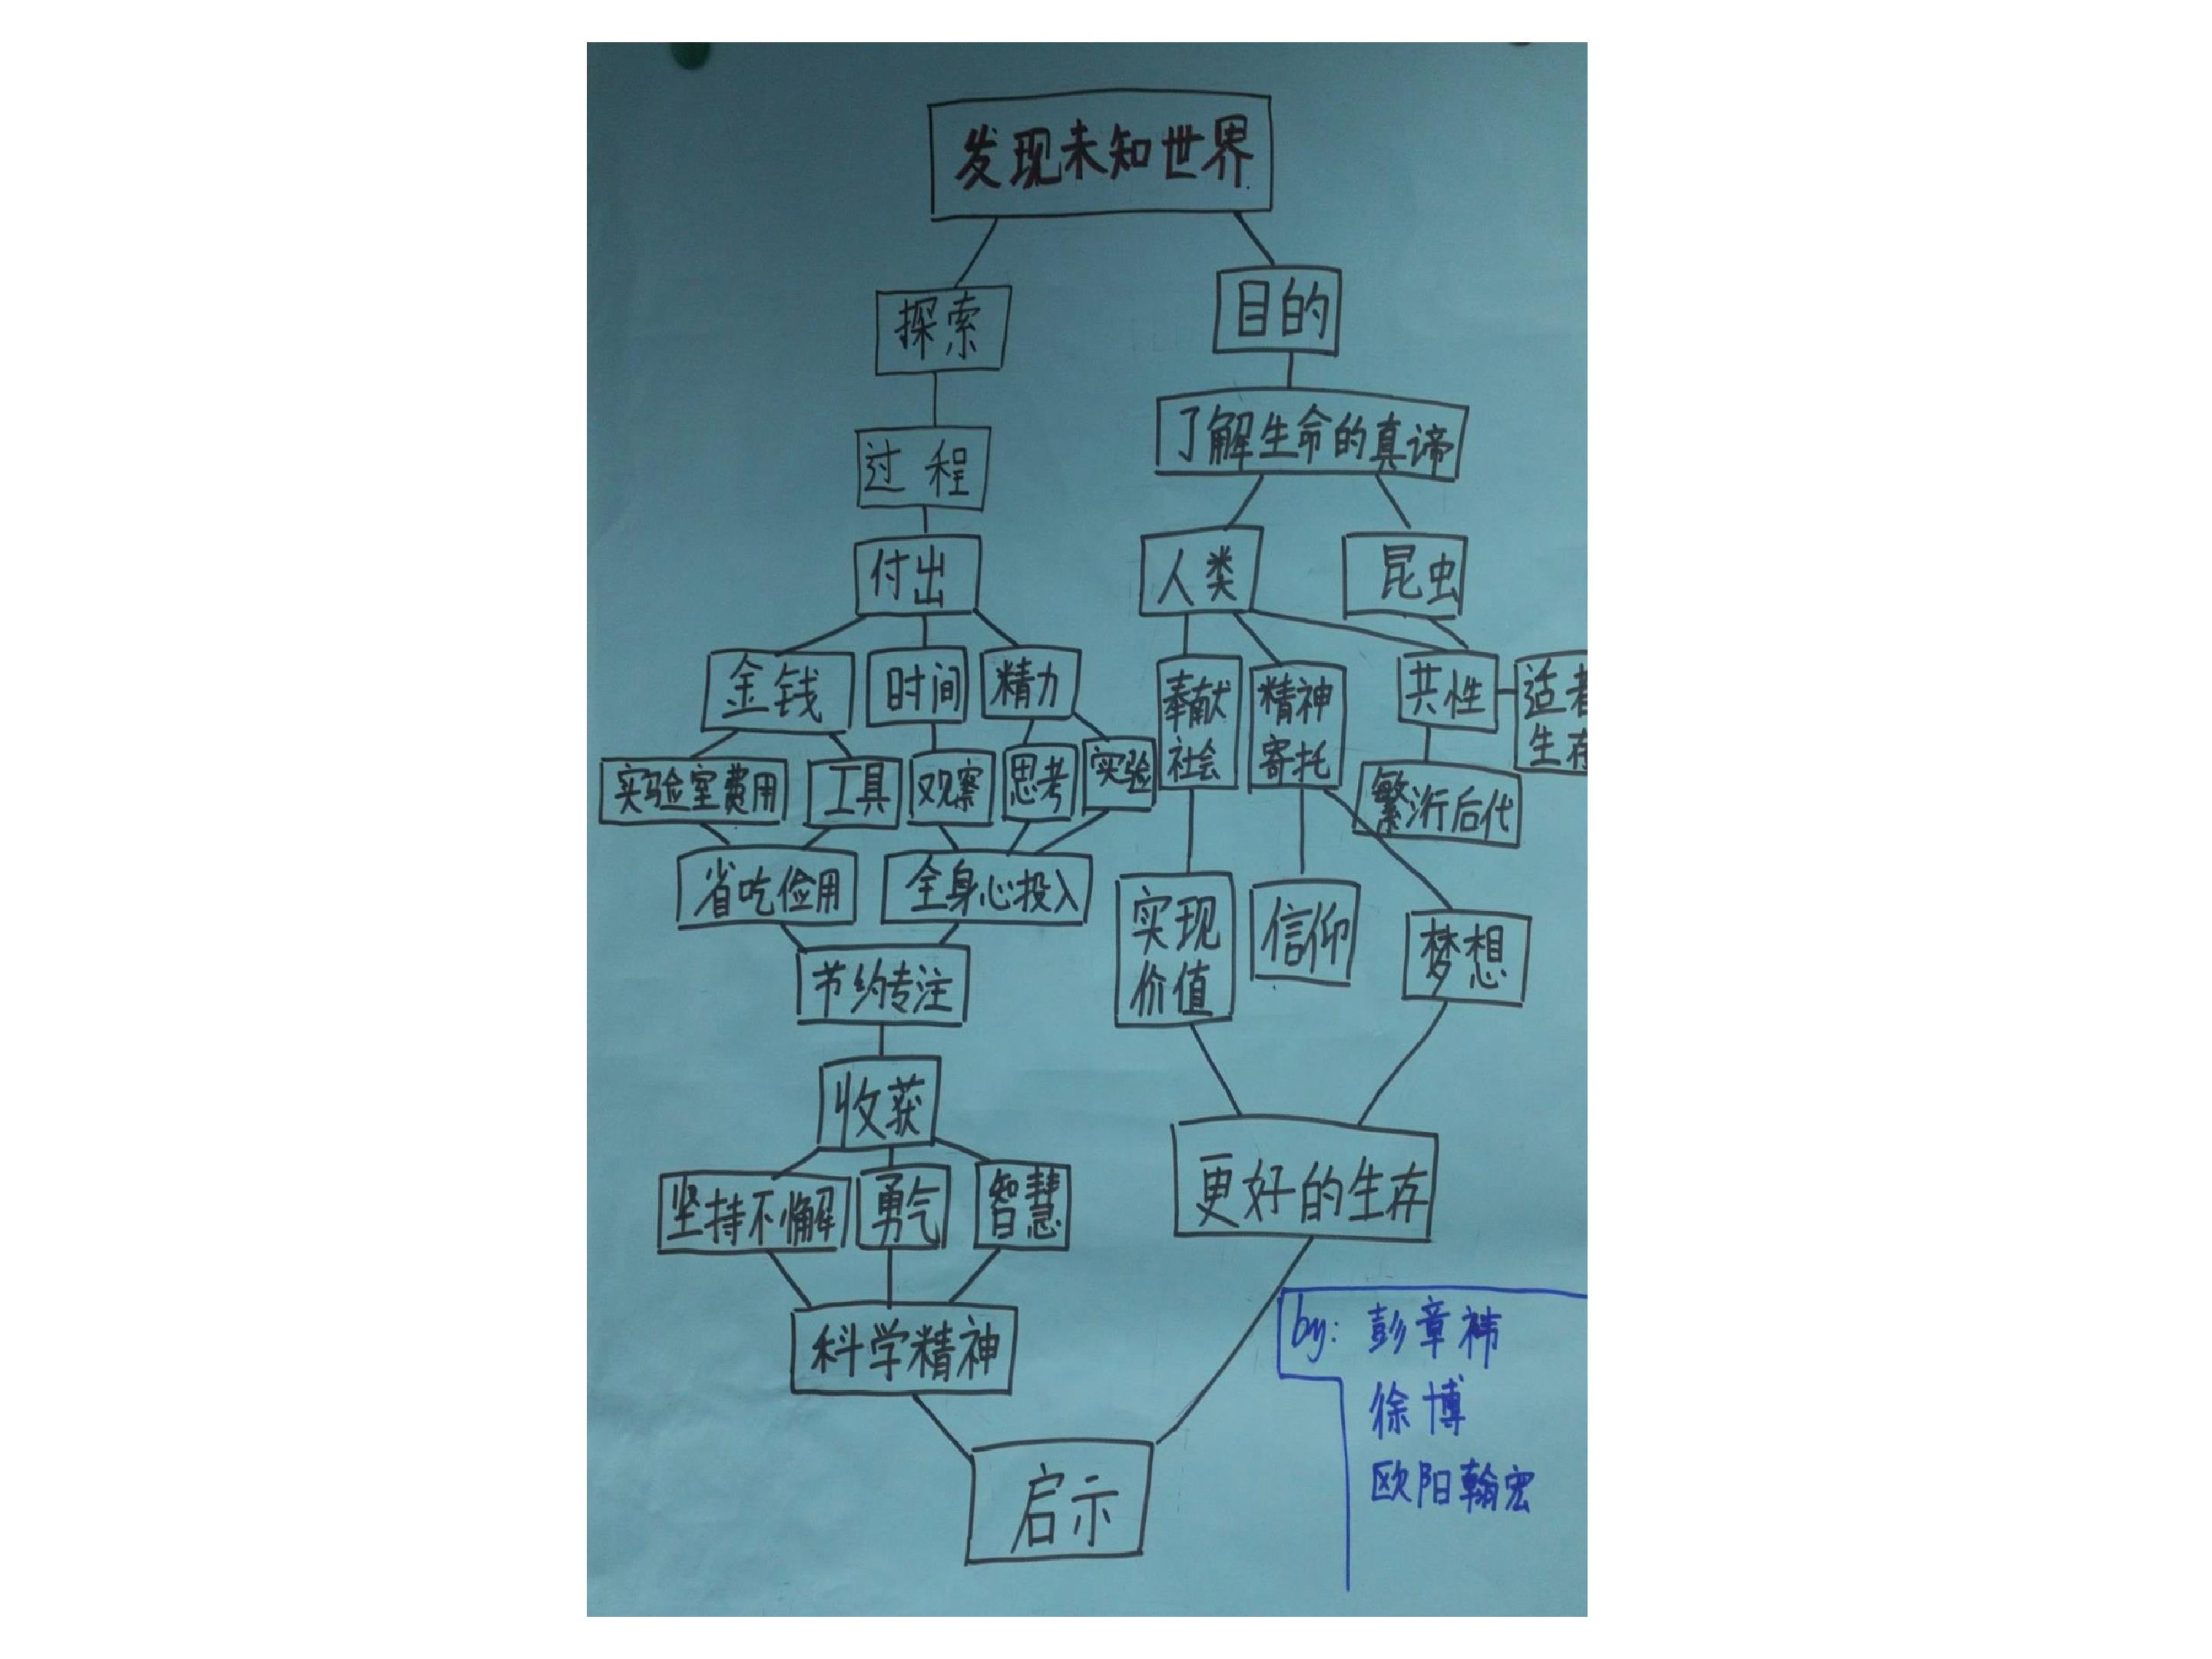 发现未知世界
探索
目的
过程
了解生命的真谛
付出
人类
昆虫
金钱
时间
精力
奉献
社会
精神
寄托
共性
适者
生存
实验室费用
工具
观察
思考
实验
繁衍后代
省吃俭用
全身心投入
实现
价值
信仰
梦想
节约专注
收获
更好的生存
坚持不懈
勇气
智慧
科学精神
启示
by: 彭章祎
徐博
欧阳翰宏